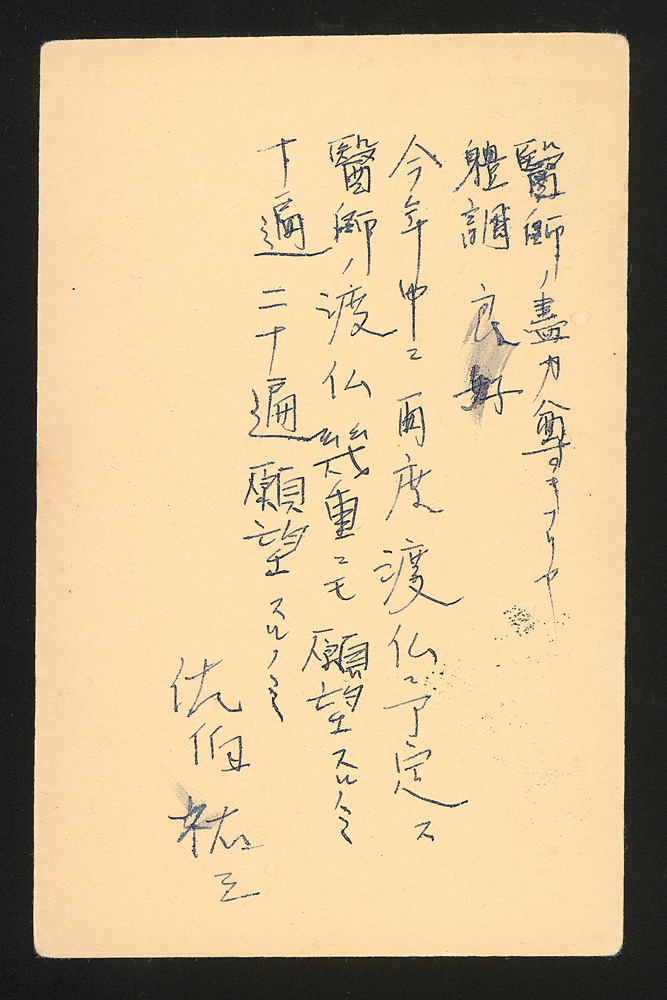 醫師ノ盡力尊キナリヤ
體調良好
今年中ニ再度渡仏ニ予定ス
醫師ノ渡仏幾重ニモ願望スルノミ
十遍二十遍願望スルノミ
佐伯祐三